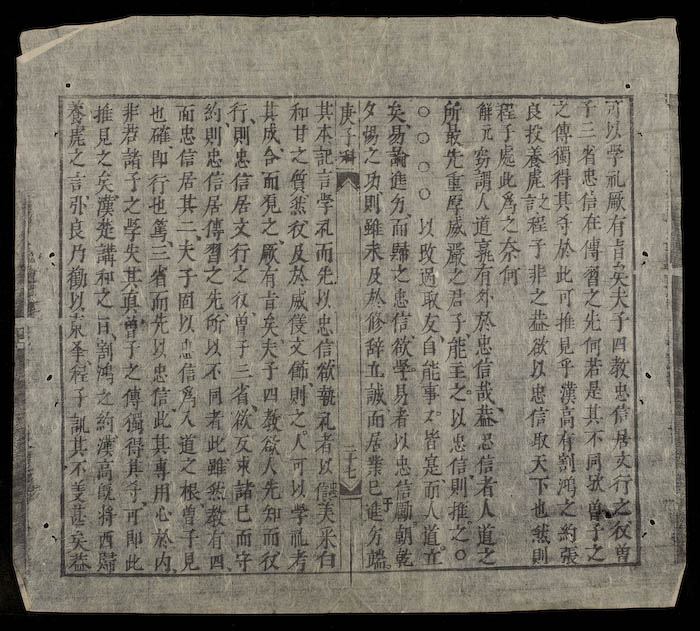 可以学礼厥有旨矣夫子四教忠信居文行之後曽
子三省忠信在傳習之先何若是其不同欤曽子之
之傳獨得其宗於此可推見乎漢高有割鴻之約張
良投養虎説程子非之盖欲以忠信取天下也然則
程子處此爲之奈何
解元 窃謂人道孰有外於忠信哉盖忠信者人道之
所最先重厚威嚴之君子能主之以忠信則推之○
○○○○以改過取友自能事又皆寔而人道立
矣易論進分而歸之忠信欲学易者以忠信勵朝乾
夕惕之功則雖未及於修辞立誠而居業已進分端
庚子科
三十七
其本記言学礼而先以忠信欲執礼者以忠信美米白
和甘之質然後及於威儀文餙則之人可以学礼者
其成合而覌之厥有旨矣夫子四教欲人先知而後
行則忠信居文行之後曽子三省欲反束諸己而守
約則忠信居傳習之先所以不同者此雖然教有四
而忠信居其二夫子固以忠信爲入道之根曽子見
也確即行也篤三省而先以忠信此其專用心於内
非若諸子之学失其真曽子之傳獨得其宗可即此
推見之矣漢楚講和之日割鴻之約漢高既將西歸
養虎之言張良乃勧以東争程子訊其不義甚矣盖